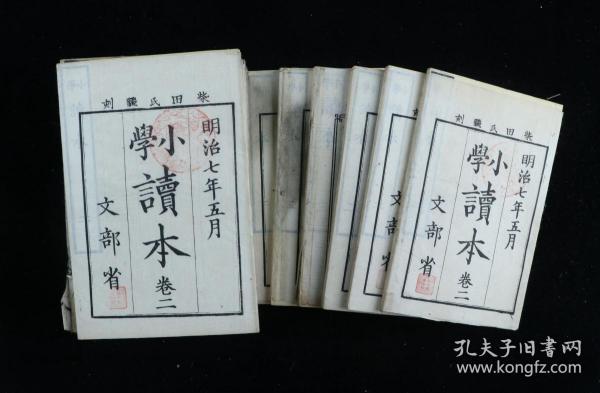 柴田氏 刻
明治七年五月
小學讀本 卷二
文部省
柴田氏 刻
明治七年五月
小學讀本 卷二
文部省
孔夫子旧书网
www.kongfz.com